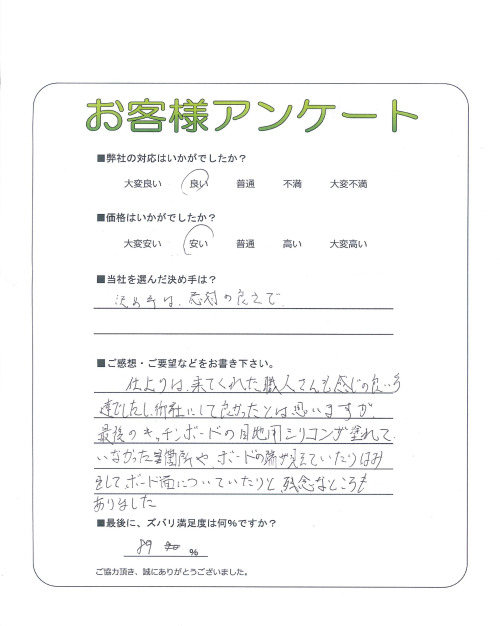 お客様アンケート
■弊社の対応はいかがでしたか？
大変良い 良い 普通 不満 大変不満
■価格はいかがでしたか？
大変安い 安い 普通 高い 大変高い
■当社を選んだ決め手は？
決め手は、応対の良さで
■ご感想・ご要望などをお書き下さい。
仕上りは、来てくれた職人さんも感じの良い
達でしたし、御社にして良かったとは思いますが、
最後のキッチンボードの目地用シリコンが塗れて
いなかった箇所や、ボードの端が見えていたりはみ
出して、ボード面についていたりと、残念なところも
ありました
■最後に、ズバリ満足度は何％ですか？
89 %
ご協力頂き、誠にありがとうございました。